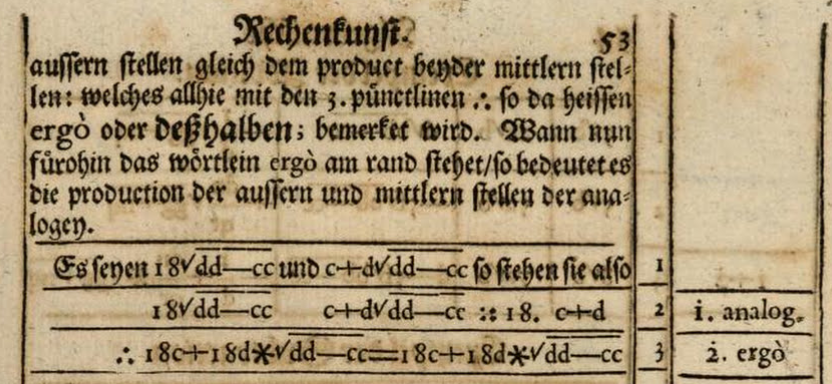 Rechenkunst. 53
aussern stellen gleich dem product beyder mittlern stel-
len: welches allhie mit den 3. pünctlinen ∴ so da heissen
ergò oder deßhalben; bemerket wird. Wann nun
fürohin das wörtlein ergò am rand stehet/so bedeutet es
die production der aussern und mittlern stellen der ana-
logey.
Es seyen 18√dd—cc und c+d√dd—cc so stehen sie also 1
18√dd—cc c+d√dd—cc :: 18. c+d 2 1. analog.
∴ 18c+18d*√dd—cc=18c+18d*√dd—cc 3 2. ergò